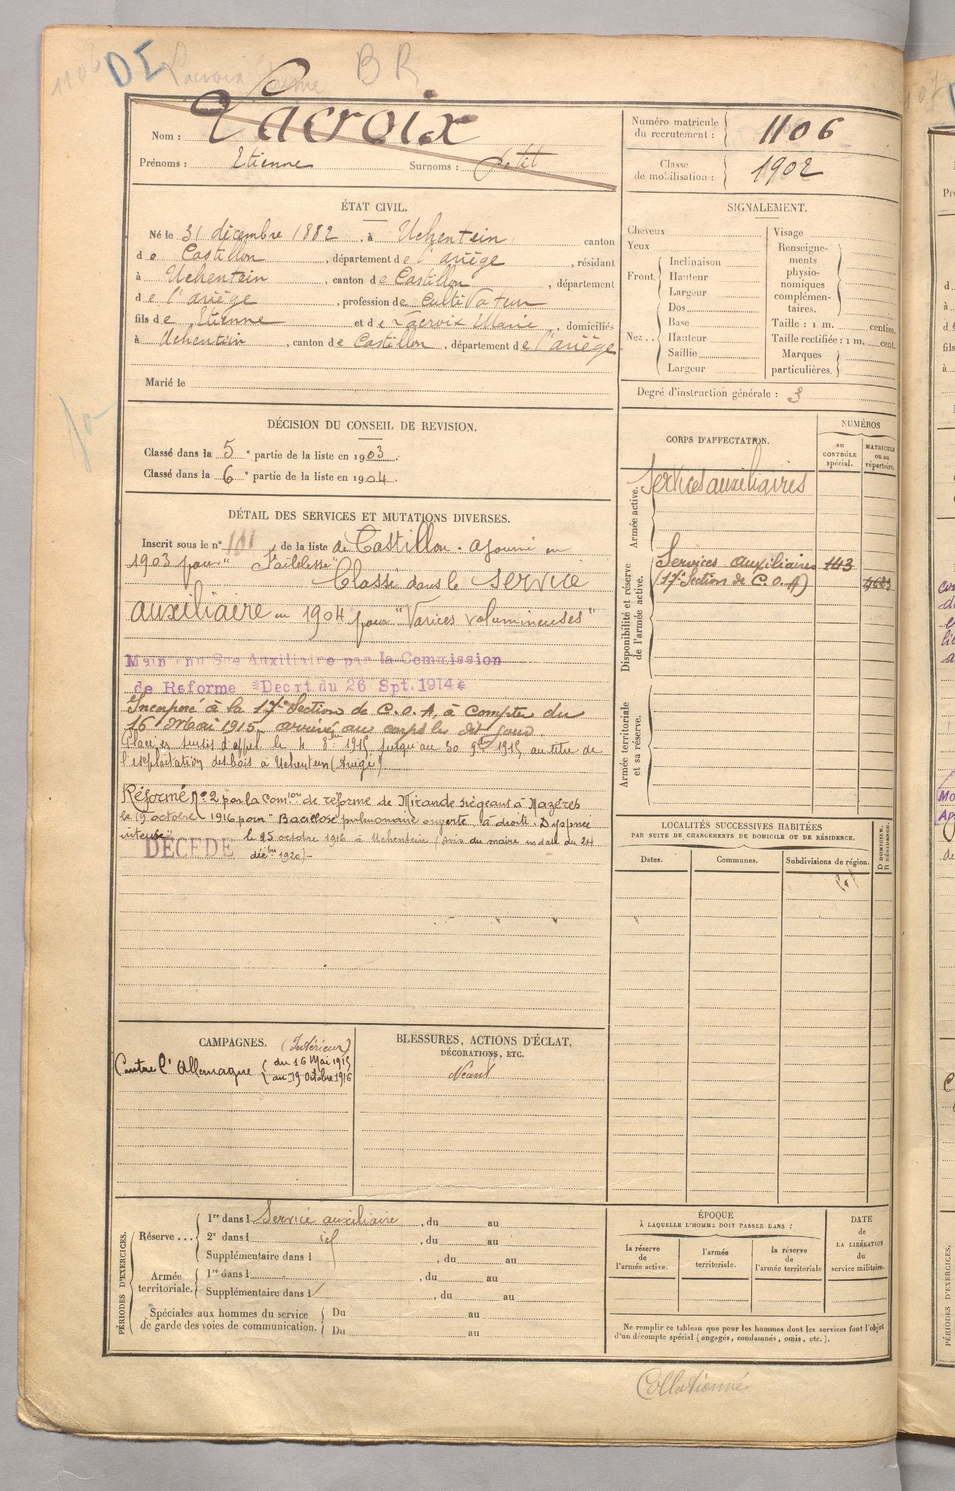 1106 DI Lacroix BR
Nom : Lacroix
Prénoms : Etienne Surnoms : Petit
Numéro matricule du recrutement : 1106
Classe de mobilisation : 1902
ÉTAT CIVIL.
Né le 31 décembre 1882, à Uchentein canton
de Castillon, département de l'ariège, résidant
à Uchentein, canton de Castillon, département
de l'ariège, profession de Cultivateur
fils de Etienne et de Lacroix Marie, domiciliés
à Uchentein, canton de Castillon, département de l'ariège.
Marié le
SIGNALEMENT.
Cheveux
Yeux
Front. Inclinaison
Hauteur
Largeur
Nez.. Dos
Base
Hauteur
Saillie
Largeur
Visage
Renseigne-
ments
physio-
nomiques
complémen-
taires.
Taille : 1 m. centim.
Taille rectifiée : 1 m. cent.
Marques
particulières.
Degré d'instruction générale : 3
DÉCISION DU CONSEIL DE REVISION.
Classé dans la 5e partie de la liste en 1903.
Classé dans la 6e partie de la liste en 1904.
DÉTAIL DES SERVICES ET MUTATIONS DIVERSES.
Inscrit sous le n° 101 de la liste de Castillon. ajourné en
1903 pour "Faiblesse"
Classé dans le service
auxiliaire en 1904 pour "Varices volumineuses"
Maintenu Sce Auxiliaire par la Commission
de Reforme Decrt du 26 Spt. 1914
Incorporé à la 17e Section de C.O.A. à compter du
16 Mai 1915, arrivé au corps les dit jour.
Placé en sursis d'appel le 4 8bre 1915 jusqu'au 30 9bre 1915, au titre de
l'exploitation des bois à Uchentein (Ariège)
Réformé N° 2 par la Comion de réforme de Mirande siégeant à Mazères
le 19 octobre 1916 pour "Bacillose pulmonaire ouverte à droite. Dyspnée
intense"
DÉCÉDÉ le 25 octobre 1916 à Uchentein (avis du maire en date du 24
décbre 1920).-
CORPS D'AFFECTATION.
NUMÉROS
au CONTRÔLE spécial.
MATRICULE ou au répertoire.
Armée active.
Services auxiliaires
Disponibilité et réserve de l'armée active.
Services Auxiliaires 143
(17e Section de C.O.A)
Armée territoriale et sa réserve.
LOCALITÉS SUCCESSIVES HABITÉES
PAR SUITE DE CHANGEMENTS DE DOMICILE OU DE RÉSIDENCE.
Dates.
Communes.
Subdivisions de région.
D DOMICILE.
R RÉSIDENCE.
CAMPAGNES.
(Intérieur)
Contre l'Allemagne du 16 Mai 1915
au 19 Octobre 1916
BLESSURES, ACTIONS D'ÉCLAT,
DÉCORATIONS, ETC.
Néant
PÉRIODES D'EXERCICES.
Réserve... 1re dans l Service auxiliaire, du au
2e dans l id, du au
Supplémentaire dans l, du au
Armée territoriale. 1re dans l, du au
Supplémentaire dans l, du au
Spéciales aux hommes du service
de garde des voies de communication.
Du au
Du au
ÉPOQUE
À LAQUELLE L'HOMME DOIT PASSER DANS :
la réserve de l'armée active.
l'armée territoriale.
la réserve de l'armée territoriale
DATE
de
LA LIBÉRATION
du
service militaire.
Ne remplir ce tableau que pour les hommes dont les services font l'objet
d'un décompte spécial (engagés, condamnés, omis, etc.).
Collationné